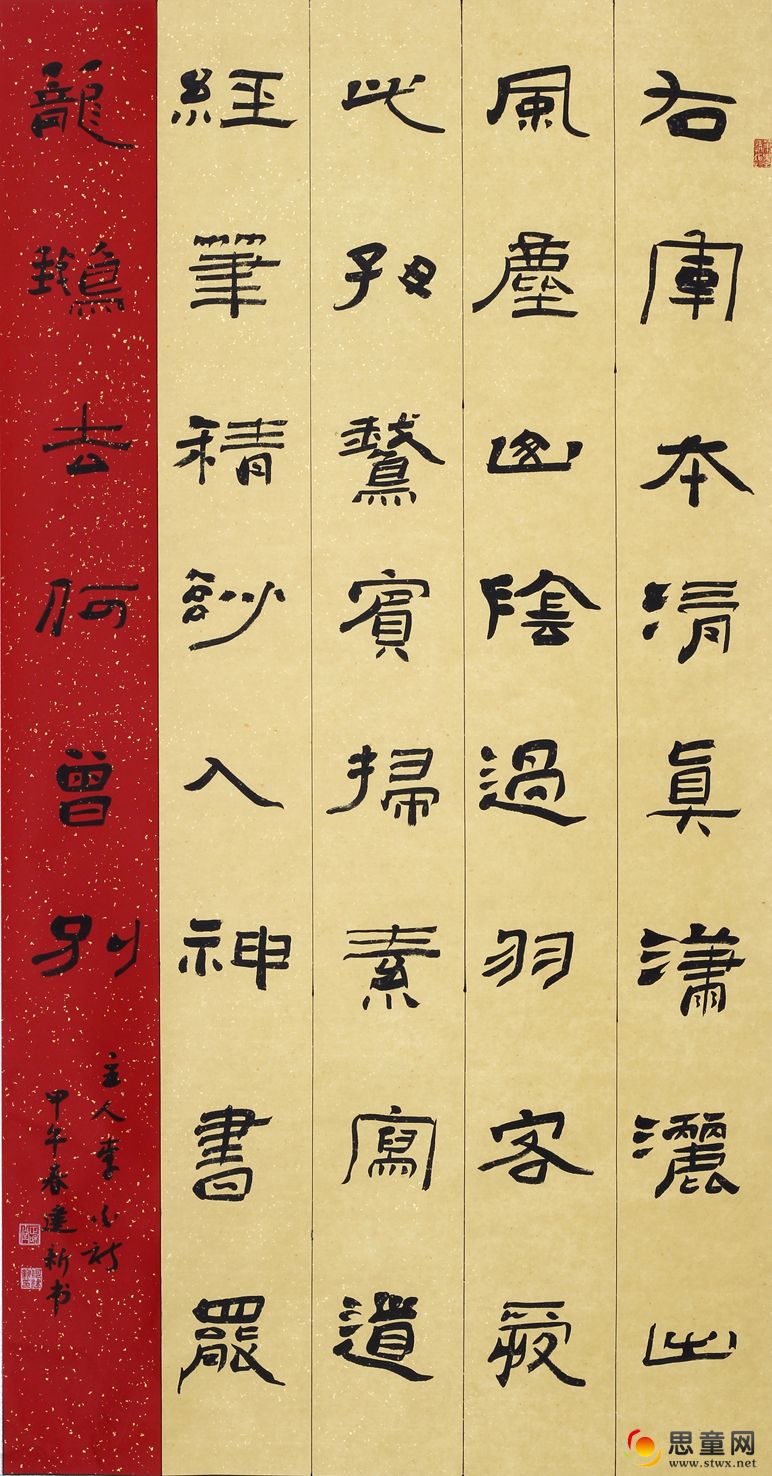 右軍本清真瀟灑出
風塵山陰過羽客愛
此好鵞賓掃素寫道
經筆精妙入神書罷
籠鵝去何曾別
主人李白诗
甲午春建新书
思童网
www.stwx.net